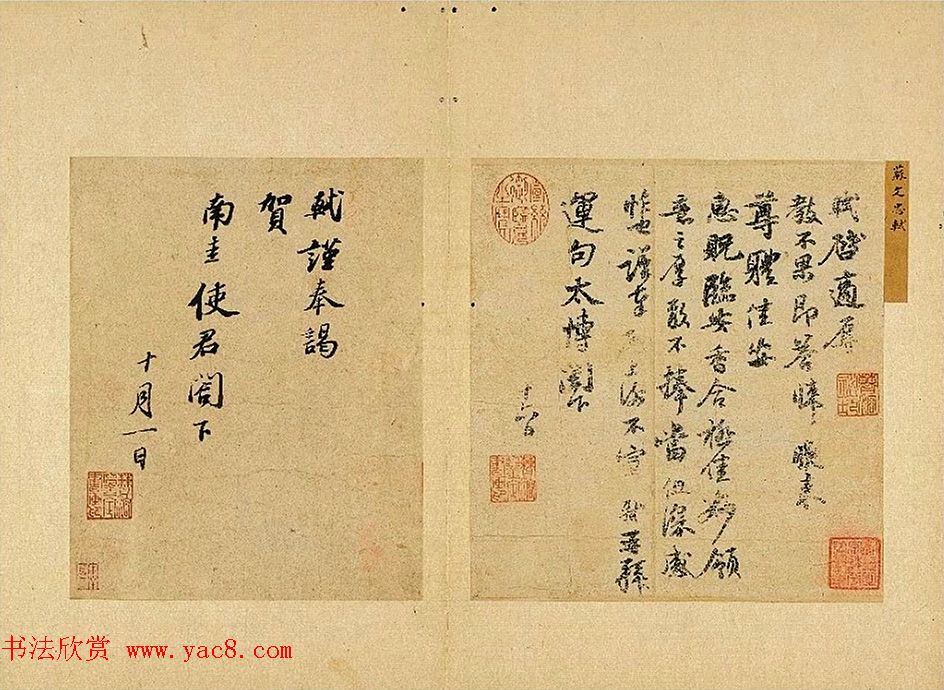 蘇文忠軾
軾啓適辱
教不果即答悚悚晚來
尊體佳安
惠貺臨安香合極佳妙領
意之厚敢不捧當但深感
怍也謹奉啓上謝不宣軾再拜
運句太博閣下
軾謹奉謁
賀
南圭使君閤下
十月一日
书法欣赏 www.yac8.com